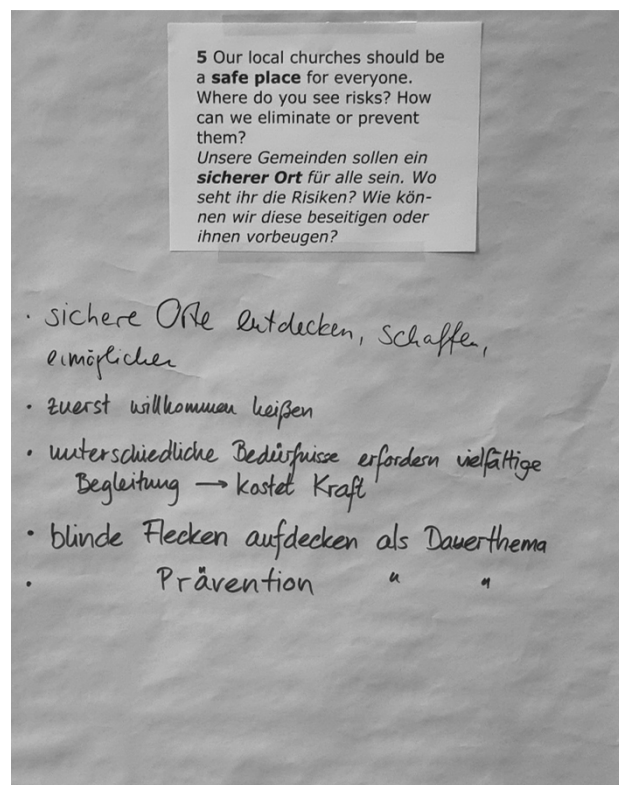 5 Our local churches should be
a safe place for everyone.
Where do you see risks? How
can we eliminate or prevent
them?
Unsere Gemeinden sollen ein
sicherer Ort für alle sein. Wo
seht ihr die Risiken? Wie kön-
nen wir diese beseitigen oder
ihnen vorbeugen?
· sichere Orte entdecken, schaffen,
ermöglichen
· zuerst willkommen heißen
· unterschiedliche Bedürfnisse erfordern vielfältige
Begleitung → kostet Kraft
· blinde Flecken aufdecken als Dauerthema
· Prävention " "